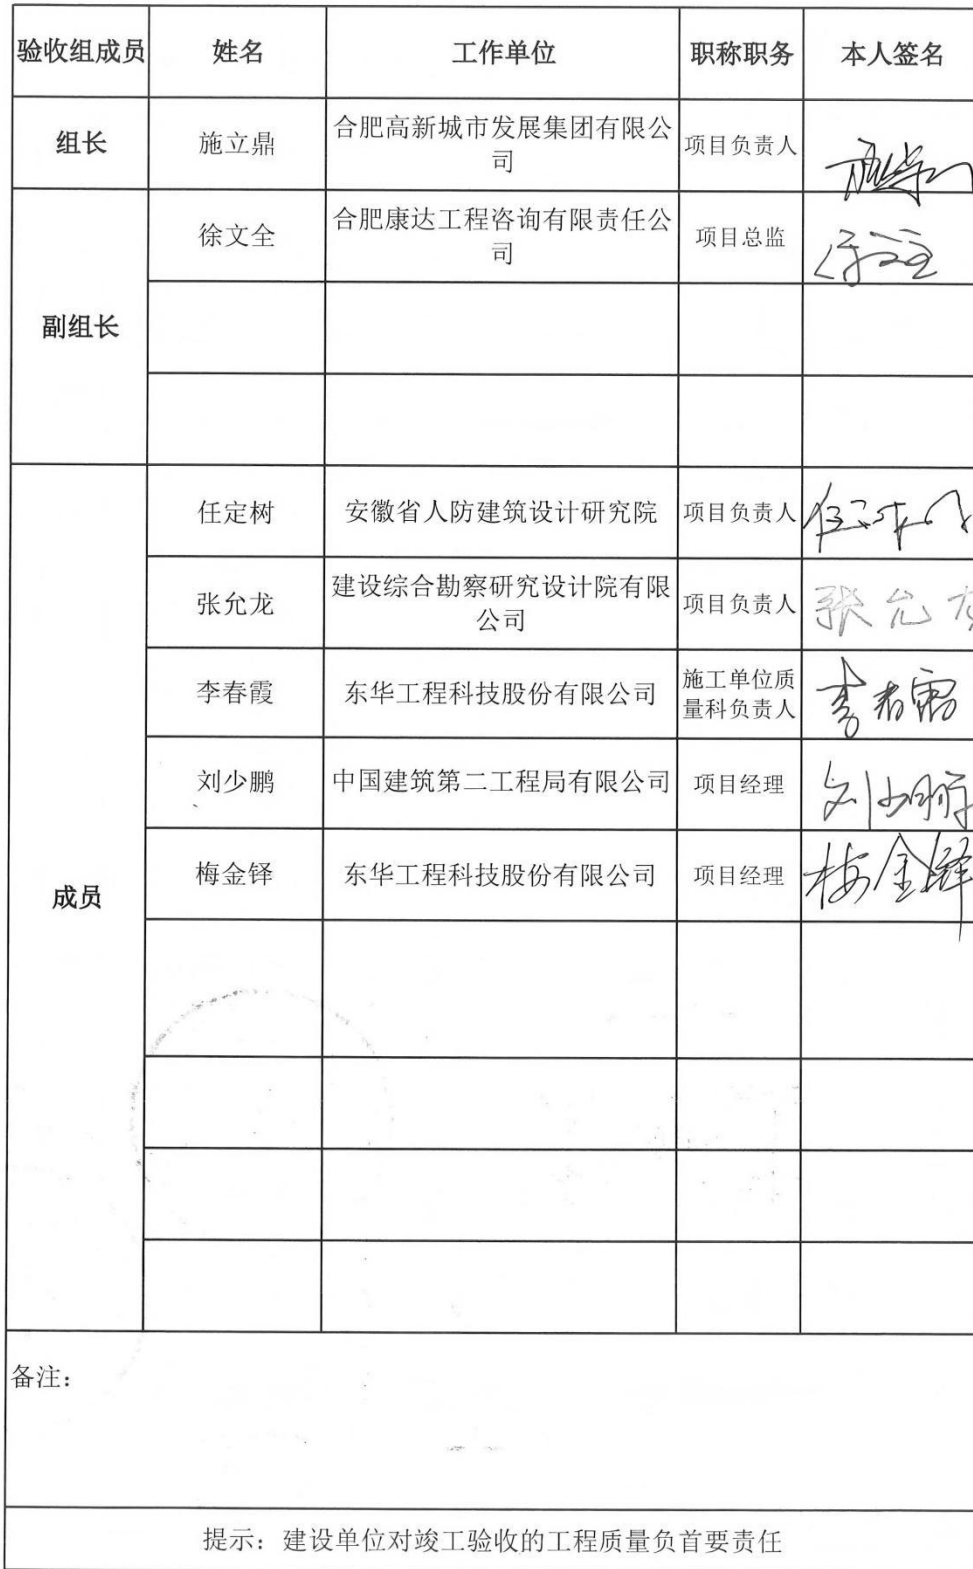 验收组成员 姓名 工作单位 职称职务 本人签名
组长 施立鼎 合肥高新城市发展集团有限公
司 项目负责人
副组长 徐文全 合肥康达工程咨询有限责任公
司 项目总监
成员 任定树 安徽省人防建筑设计研究院 项目负责人
张允龙 建设综合勘察研究设计院有限
公司 项目负责人 张允龙
李春霞 东华工程科技股份有限公司 施工单位质
量科负责人 李春霞
刘少鹏 中国建筑第二工程局有限公司 项目经理 刘少鹏
梅金铎 东华工程科技股份有限公司 项目经理 梅金铎
备注：
提示：建设单位对竣工验收的工程质量负首要责任